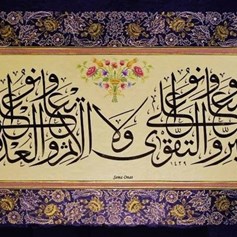 وتعاونوا على البر والتقوى ولا تعاونوا على الإثم والعدوان
١٤٢٩